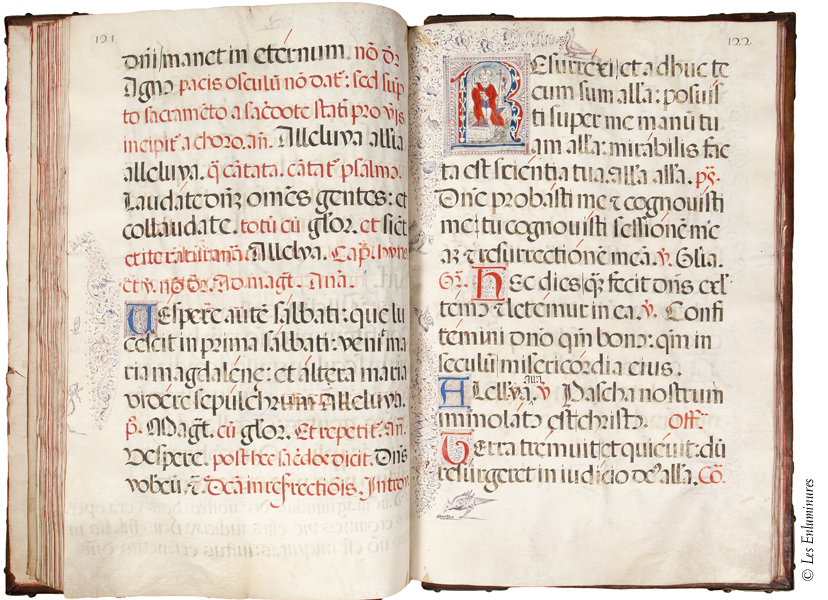 121
dñi manet in etérnum. nõ dr̃
Agnꝰ pacis osculũ nõ dat᷒: sed sũp
to sacramẽto a sac̃dote stati pro v̓is
incipit᷒ a choro. añ. Alleluya all̃ia
alleluya. q̃ cãtata. cãtat᷒ psalmꝰ.
Laudate dnȝ omẽs gentes: et
collaudate. totũ cũ glor̃. et sic̃t
Alleluya.
et v̓. nõ dr̃. Ad magt̃. Aña.
Vespere aũte sabbati: que lu
cescit in prima sabbati: venit ma
ria magdaléne: et áltera maria
vidére sepulchrum Alleluya.
p̃. Magt̃. cũ glor̃. Et repetit᷒. añ.
Vespere. post hec sac̃doe dicit. Dñs
vobcũ. ⁊c̃. Dc̃a in resrectiõis. Introy
122
Resurréxi et adhuc te
cum sum all̃a: posuis
ti super me manũ tu
am all̃a: mirábilis fac
ta est sciéntia tua all̃a all̃a. pṡ.
Dñe probásti me ⁊ cognouísti
me: tu cognouísti sessiónẽ me
aȝ ⁊ resurrectiónẽ meã. v̓. Glía.
Gr̃. Hec dies q̃ȝ fecit dñs exl̃
témꝰ ⁊ letémur in ea. v̓. Confi
témini dnõ qm̃ bonꝰ: qm̃ in
seculũ misericórdia eius.
Allelúya. all̃a v̓ Pascha nostrum
immolátꝰ est christꝰ. Off̃.
Terra trémuit et quiéuit: dũ
resúrgeret in iudício deꝰ all̃a. Cõ.
© Les Enluminures